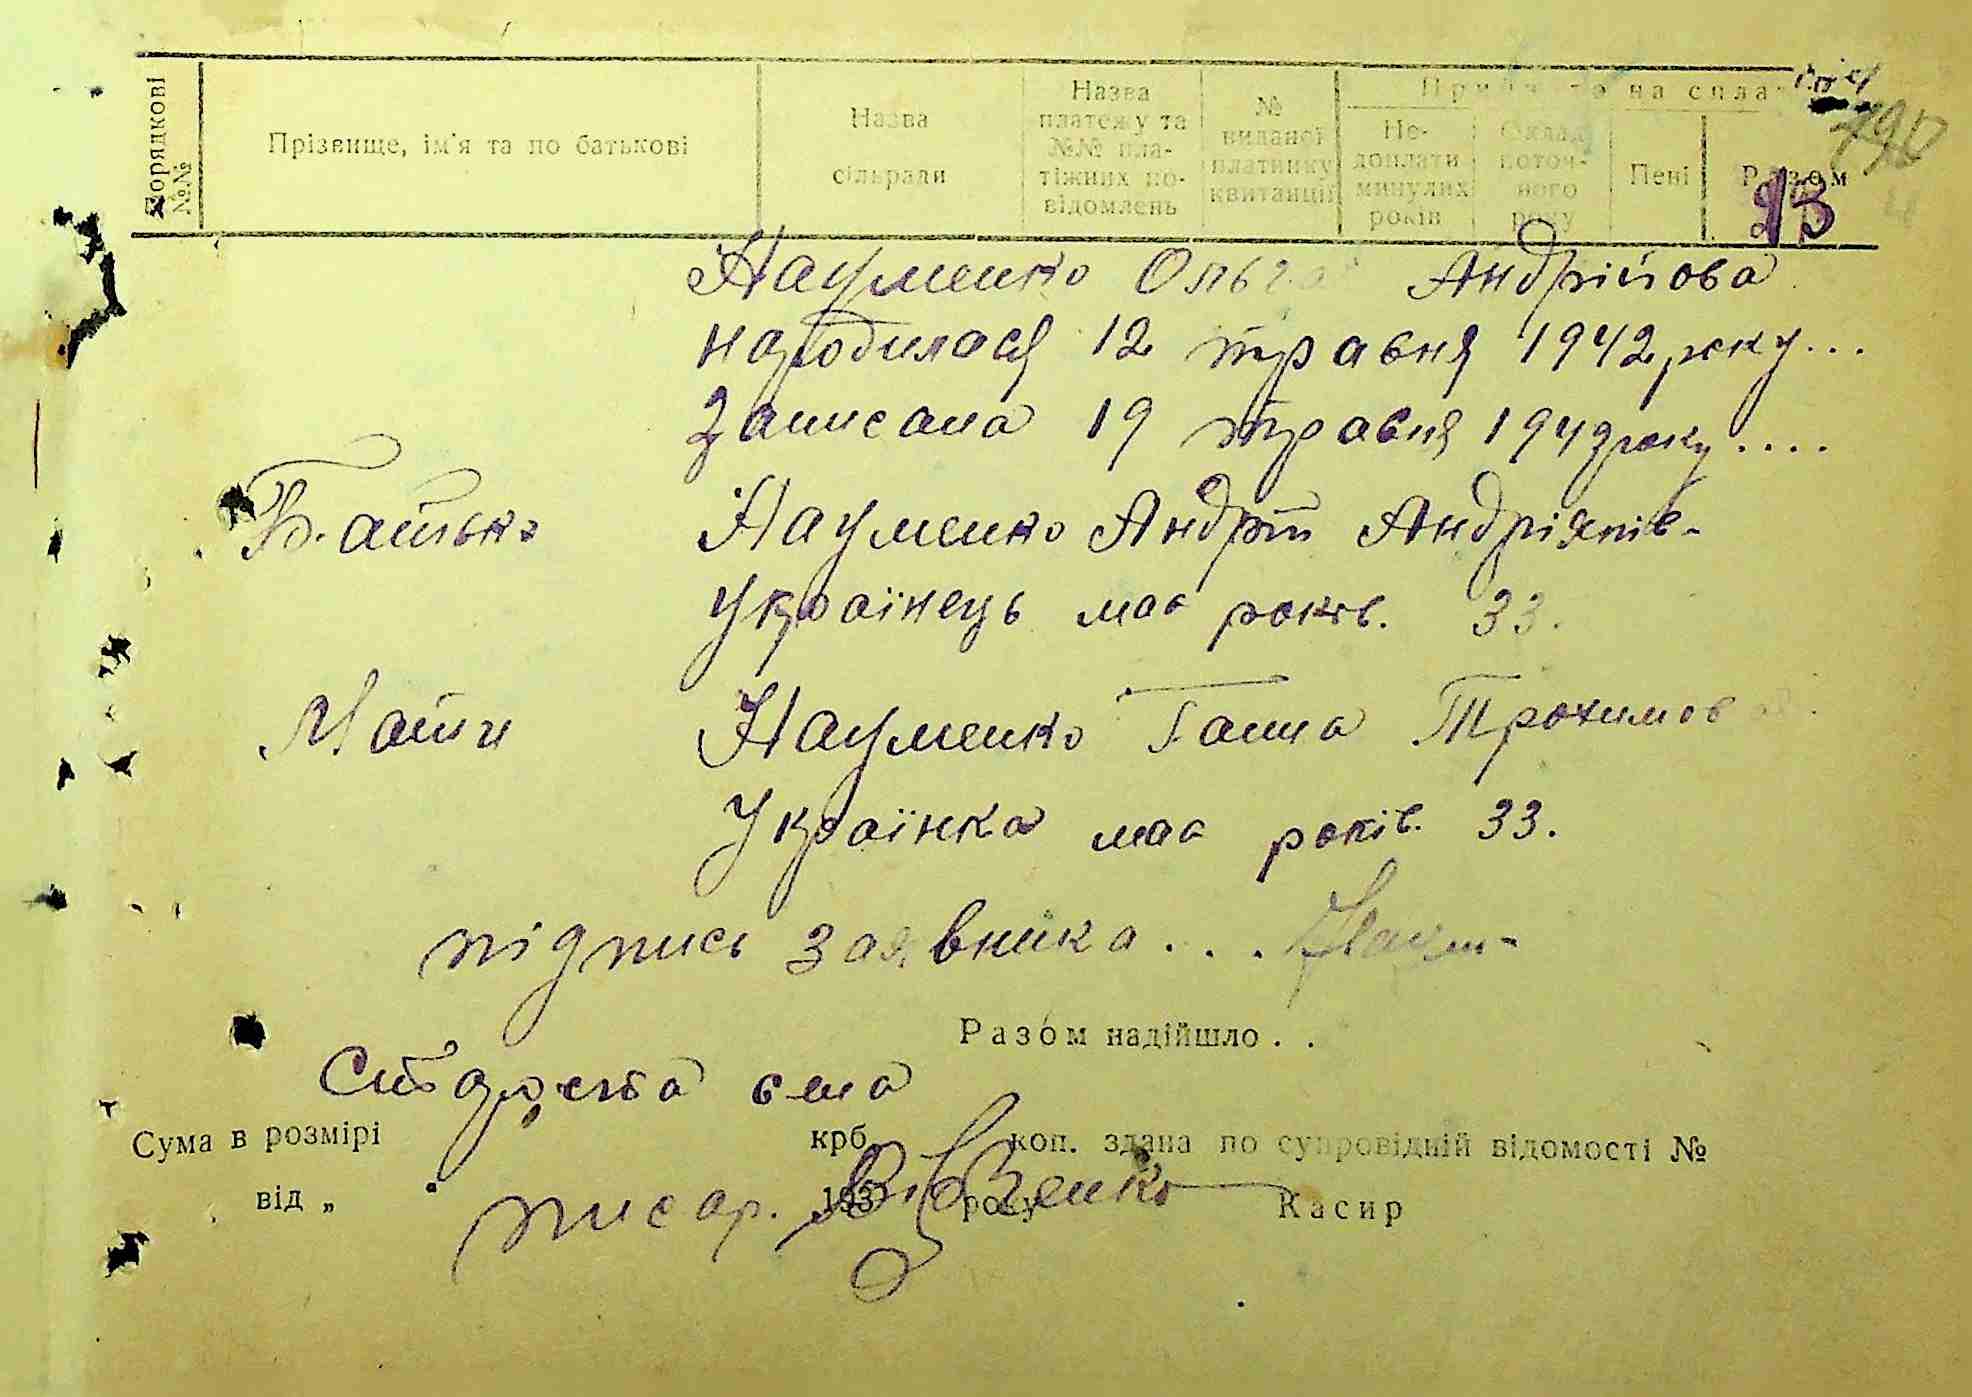 Порядкові №№
Прізвище, ім'я та по батькові
Назва сільради
Назва платежу та №№ пла-тіжних по-відомлень
№ виданої платнику квитанції
Не-доплати минулих років
Оклад поточ-ного року
Пені
Разом
Науменко Ольга Андрійова
народилася 12 травня 1942 року...
Записана 19 травня 1942 року....
Батько Науменко Андрій Андріянів-
Українець має років. 33.
Мати Науменко Ганна Трохимова
Українка має років. 33.
підпись заявника... Наум-
Разом надійшло . .
Староста села
Сума в розмірі крб. коп. здана по супровідній відомості №
писар.
від „ 193 року Касир